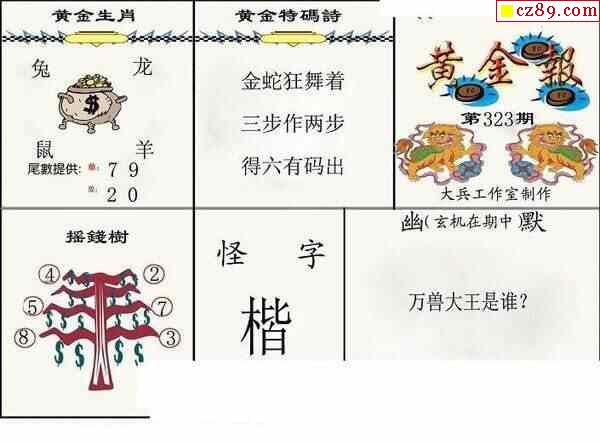 cz89.com
黄金生肖
兔 龙
$
鼠 羊
尾數提供: 7 9
2 0
黄金特碼詩
金蛇狂舞着
三步作两步
得六有码出
黄金報
第323期
大兵工作室制作
摇錢樹
④ ②
⑤ ⑦
⑧ ③
$ $ $ $ $ $ $ $ $ $
怪 字
楷
幽(玄机在期中)默
万兽大王是谁?